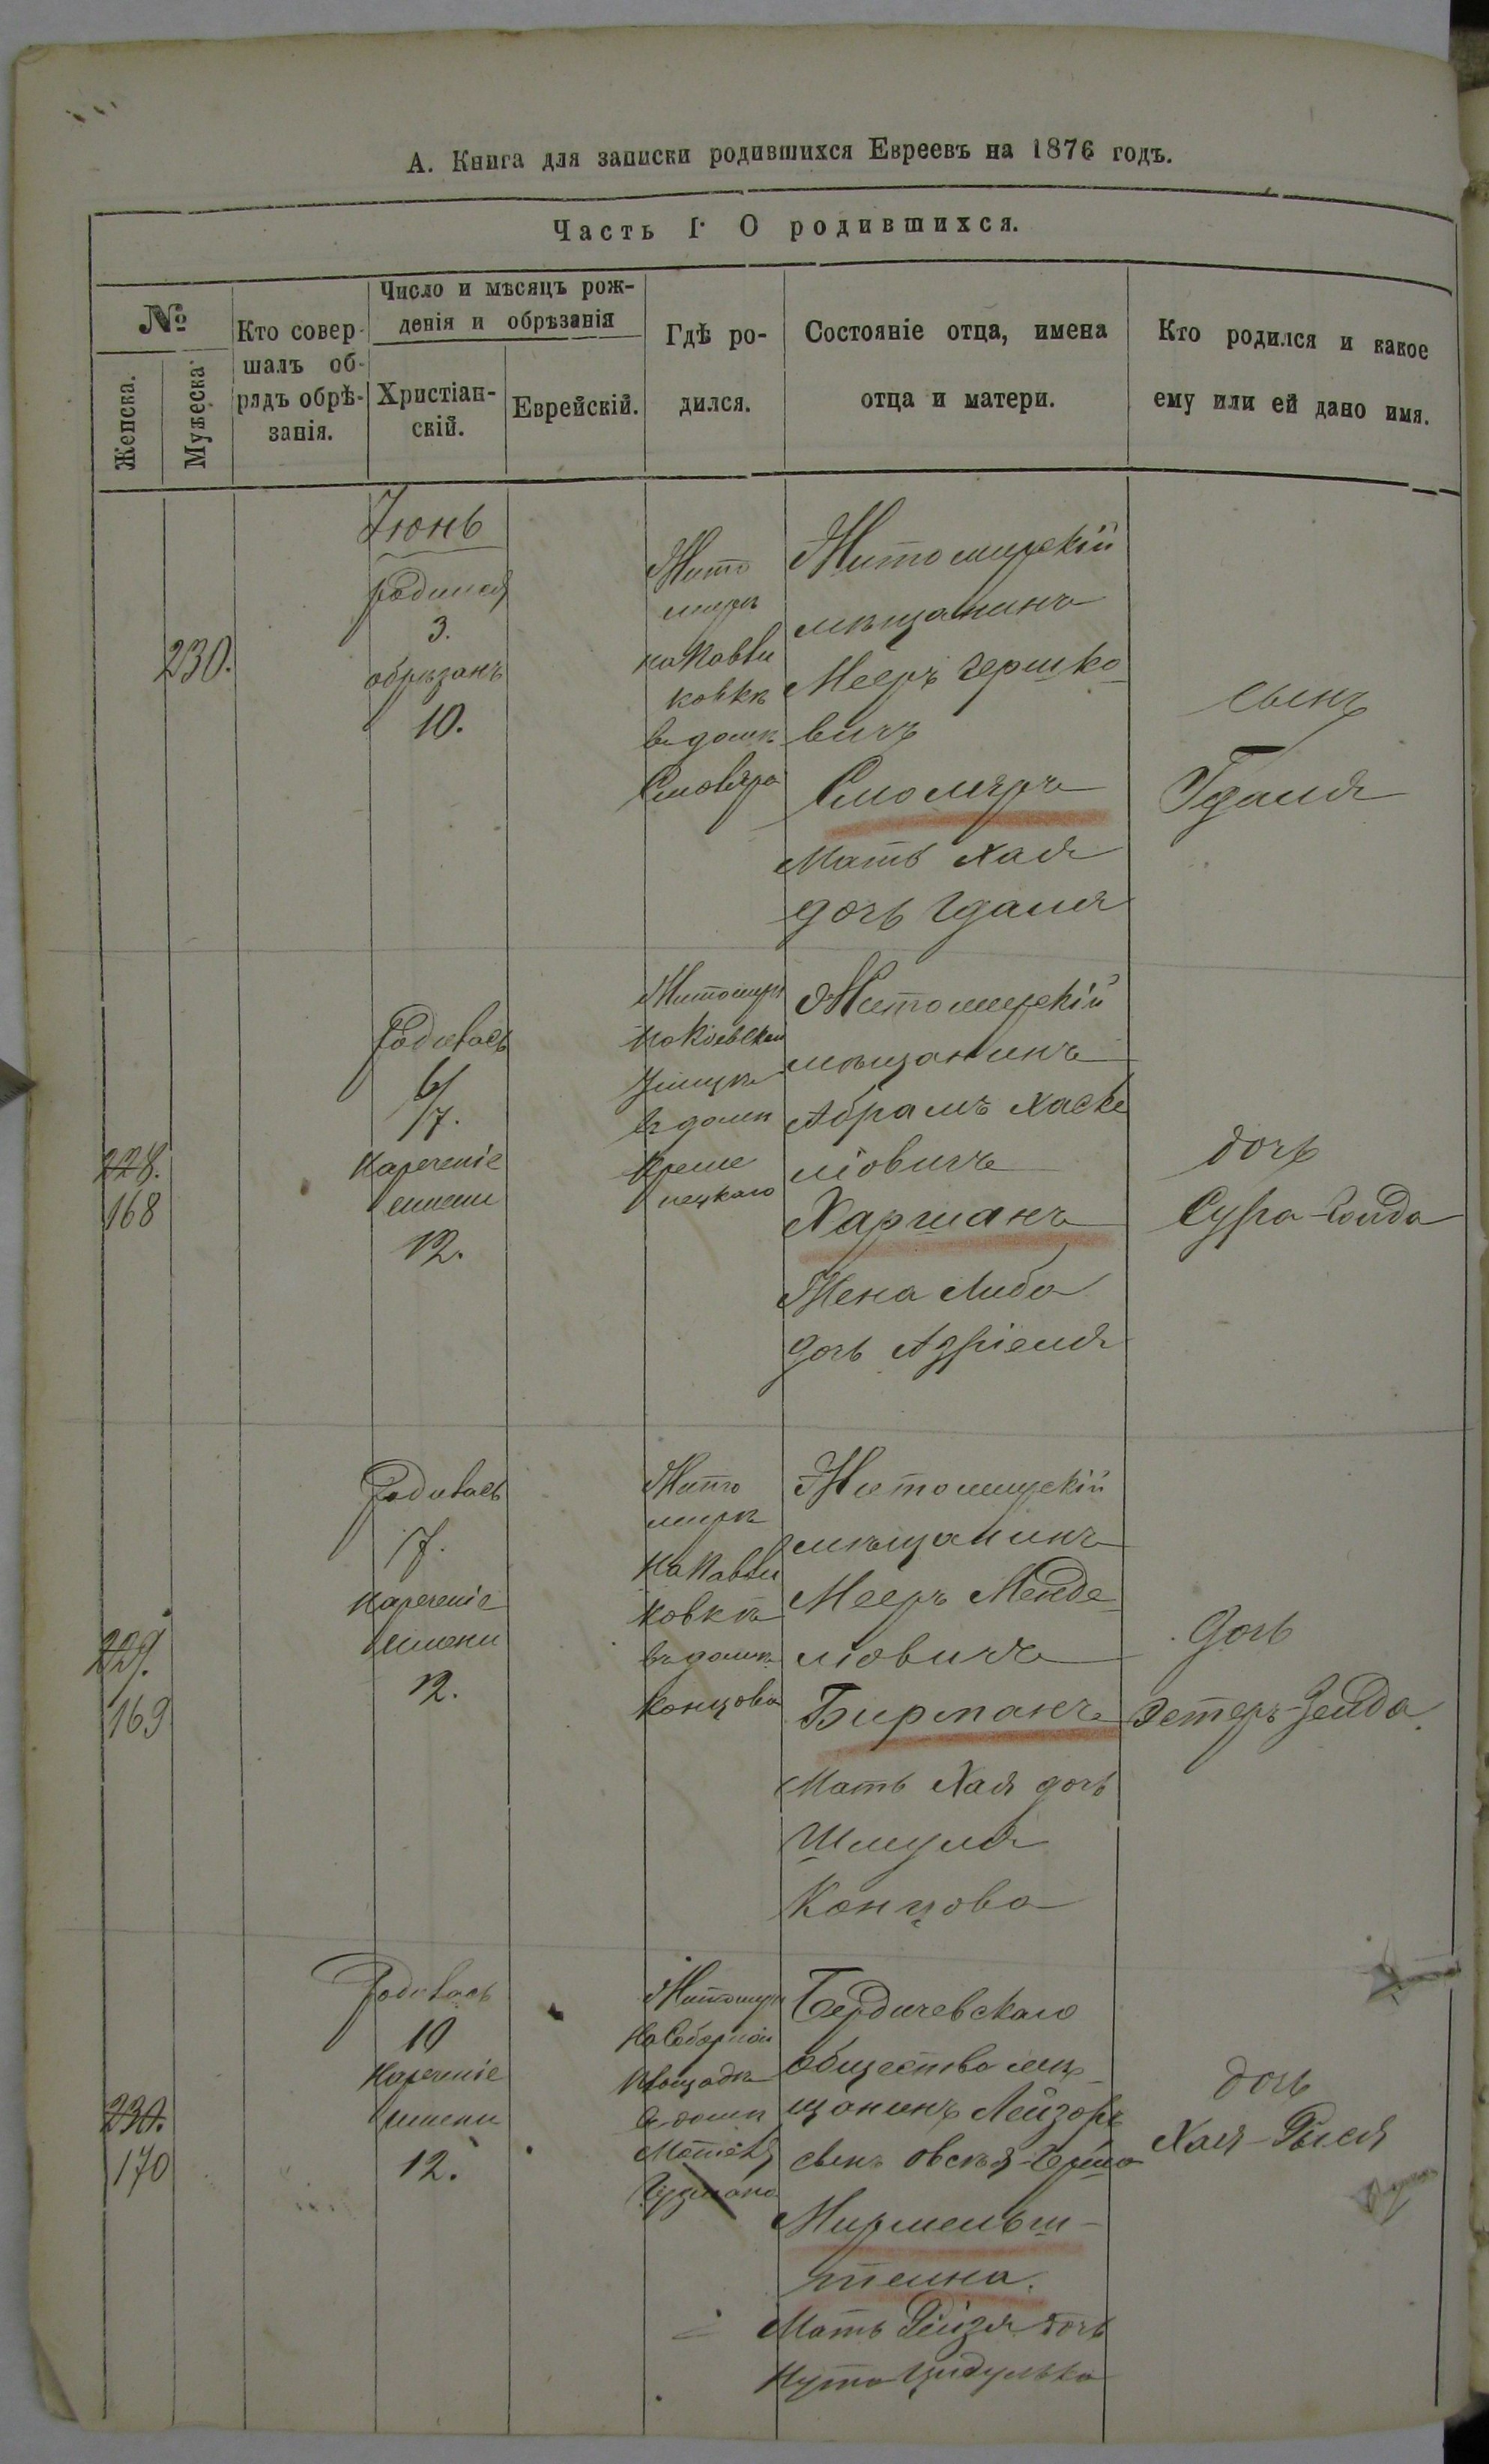 А. Книга для записки родившихся Евреевъ на 1876 годъ.
Часть I. О родившихся.
№
Женска.
Мужеска
Кто совер-
шалъ об-
рядъ обрѣ-
занія.
Число и мѣсяцъ рож-
денія и обрѣзанія
Христіан-
скій.
Еврейскій.
Гдѣ ро-
дился.
Состояніе отца, имена
отца и матери.
Кто родился и какое
ему или ей дано имя.
230.
Іюнь
родился
3.
обрѣзанъ
10.
Жито
мирѣ
на Павли
ковкѣ
въ домѣ
Смоляра
Житомирскій
мѣщанинъ
Мееръ Гершко
вичъ
Смоляръ
Мать Хая
дочь Гдаля
сынъ
Гдаля
228.
168
Родилась
6/7.
Нареченіе
имени
12.
Житомирѣ
на Кіевской
улицѣ
въ домѣ
Креме
нецкаго
Житомирскій
мѣщанинъ
Абрамъ Хаске
лiовичъ
Харшанъ
Жена Либа
дочь Азріеля
дочь
Сура-
229.
169
Родилась
7.
Нареченіе
имени
12.
Жито
мирѣ
на Павли
ковкѣ
въ домѣ
Концова
Житомирскій
мѣщанинъ
Мееръ Менде
лiовичъ
Бирманъ
Мать Хая дочь
Шмуля
Концова
дочь
Эстеръ-Зельда
230.
170
Родилась
10
Нареченіе
имени
12.
Житомирѣ
на Соборной
площадкѣ
въ домѣ
Бердичевскаго
общества мѣ
щанинъ Лейзоръ
сынъ Овсѣя-Герша
Мирмельш-
тейна.
Мать Рейзя дочь
Нута
дочь
Хая-Рыся